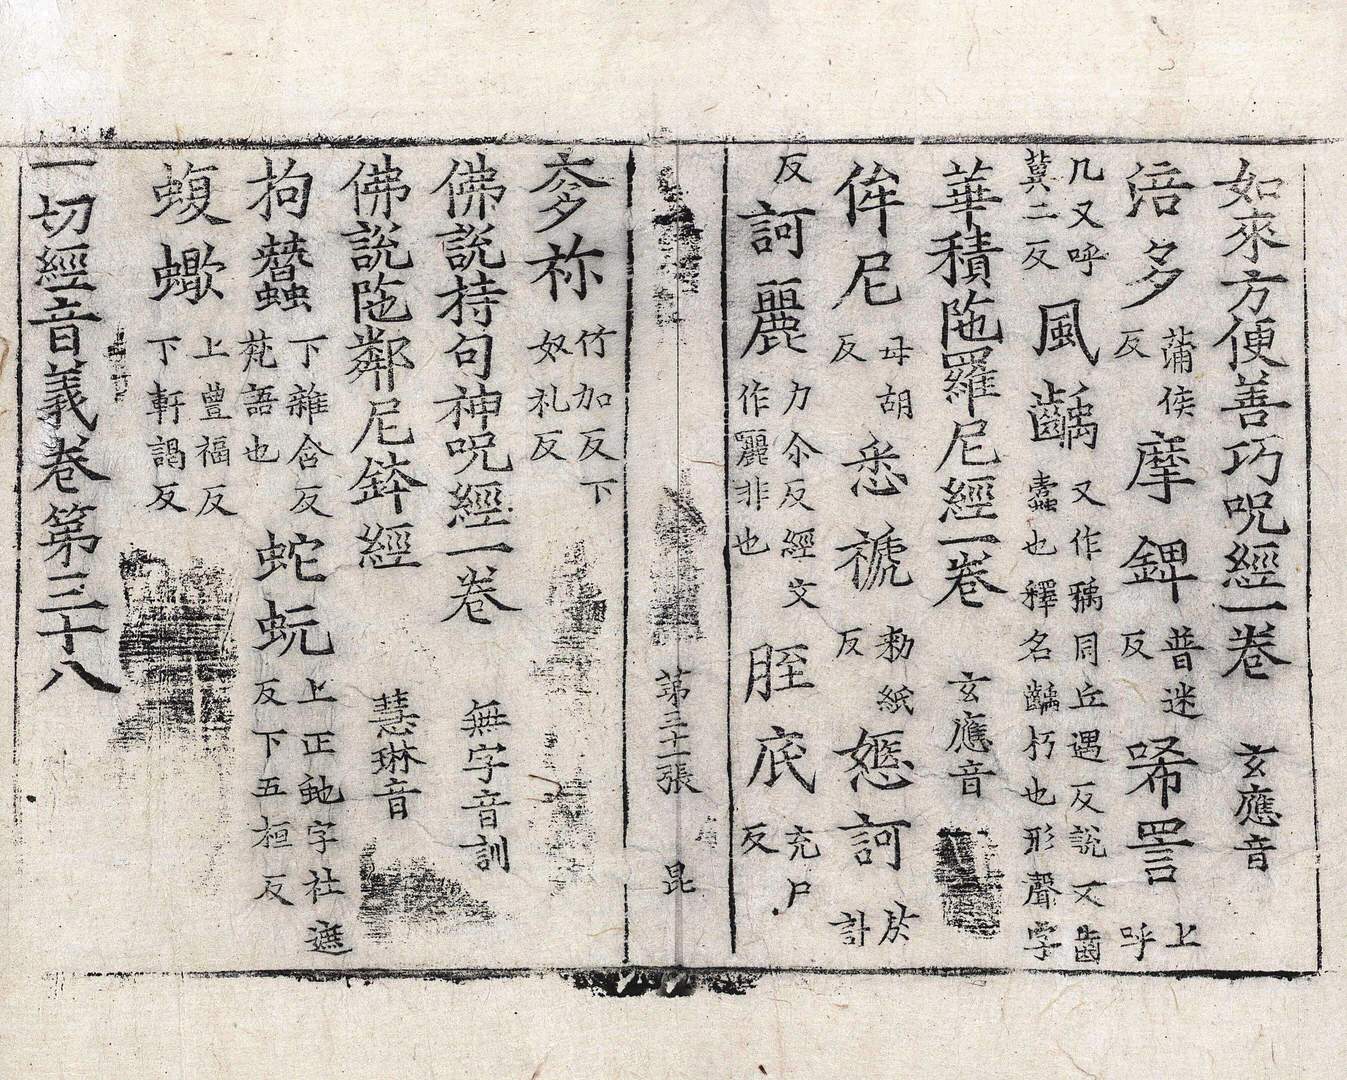 如來方便善巧呪經一卷 玄應音
涪多 蒲侯反 摩錍 普迷反 唏詈 上呼
几又呼冀二反 風齲 又作𤘐同丘遇反說文齒蠹也釋名齲朽也形聲字
華積陁羅尼經一卷 玄應音
侔尼 母胡反 悉褫 勑紙反 訶 於計
反 訶麗 力尒反經文作麗非也 胵底 充尸反
第三十一張 昆
奓祢 竹加反下奴礼反
佛說持句神呪經一卷 無字音訓
佛說陁鄰尼鉢經 慧琳音
拘蠶 下雜含反梵語也 蛇蚖 上正虵字社遮反下五桓反
蝮蠍 上豐福反下軒謁反
一切經音義卷第三十八